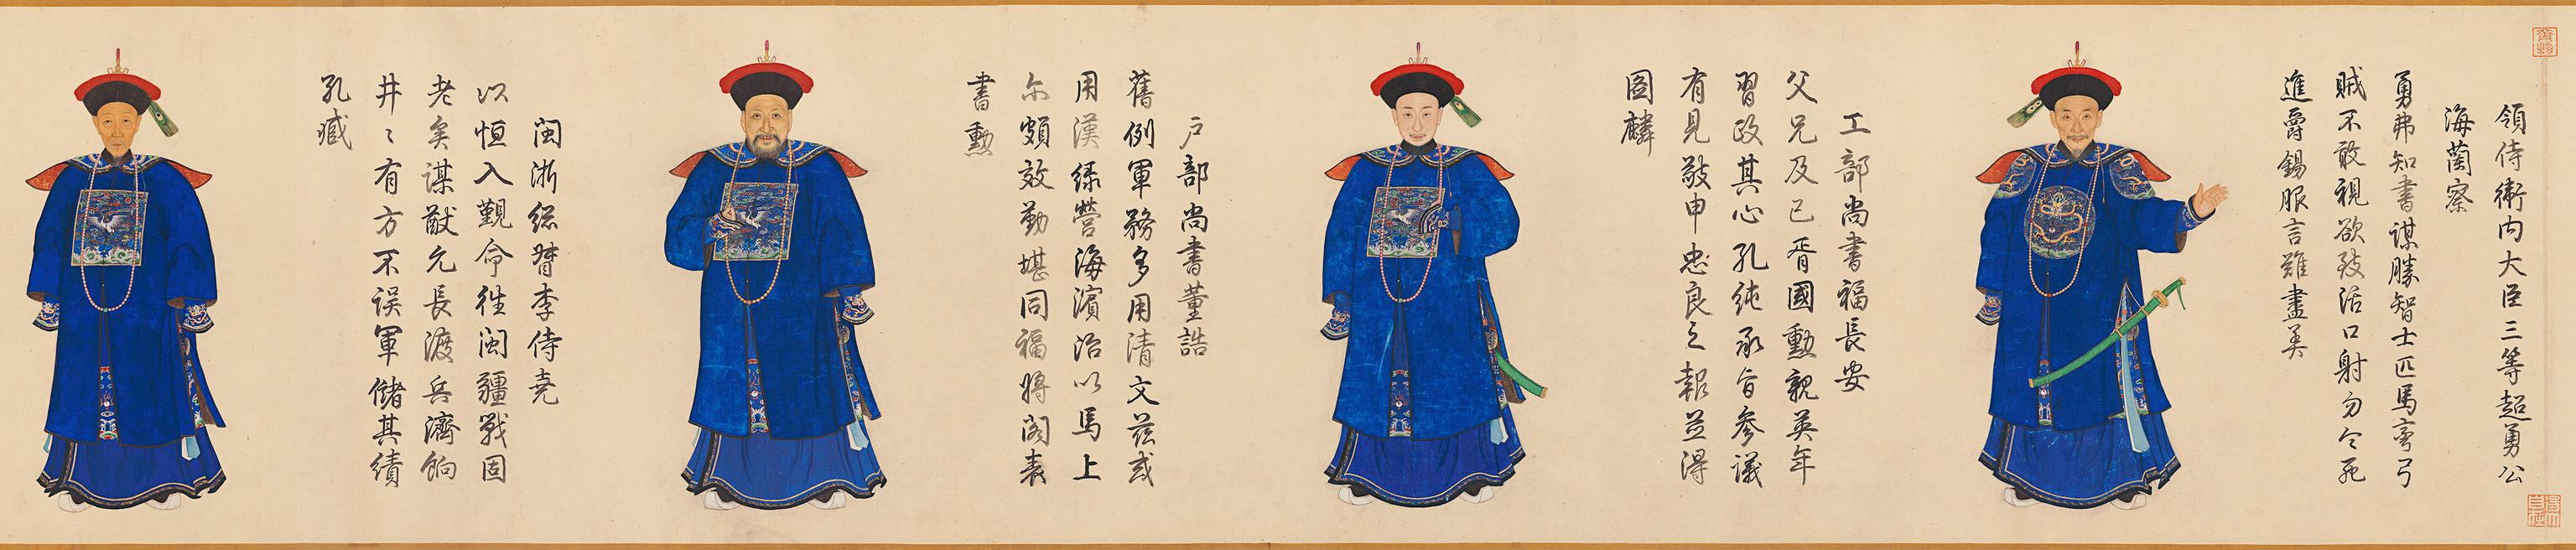 領侍衛内大臣三等超勇公
海蘭察
勇弗知書謀勝智士匹馬彎弓
賊不敢視欲殺活口射勿令死
進爵錫服言難盡美
工部尚書福長安
父兄及已胥國勳親英年
習政其心孔純承旨參議
有見敬申忠良之報並得
圖麟
户部尚書董誥
舊例軍務多用清文兹或
用漢綠營海濱治以馬上
尔頗效勤堪同福將閣表
書勲
閩浙総督李侍堯
以恒入覲命徃閩疆戰固
老矣謀猷允長渡兵濟餉
井〻有方不误軍儲其績
孔臧